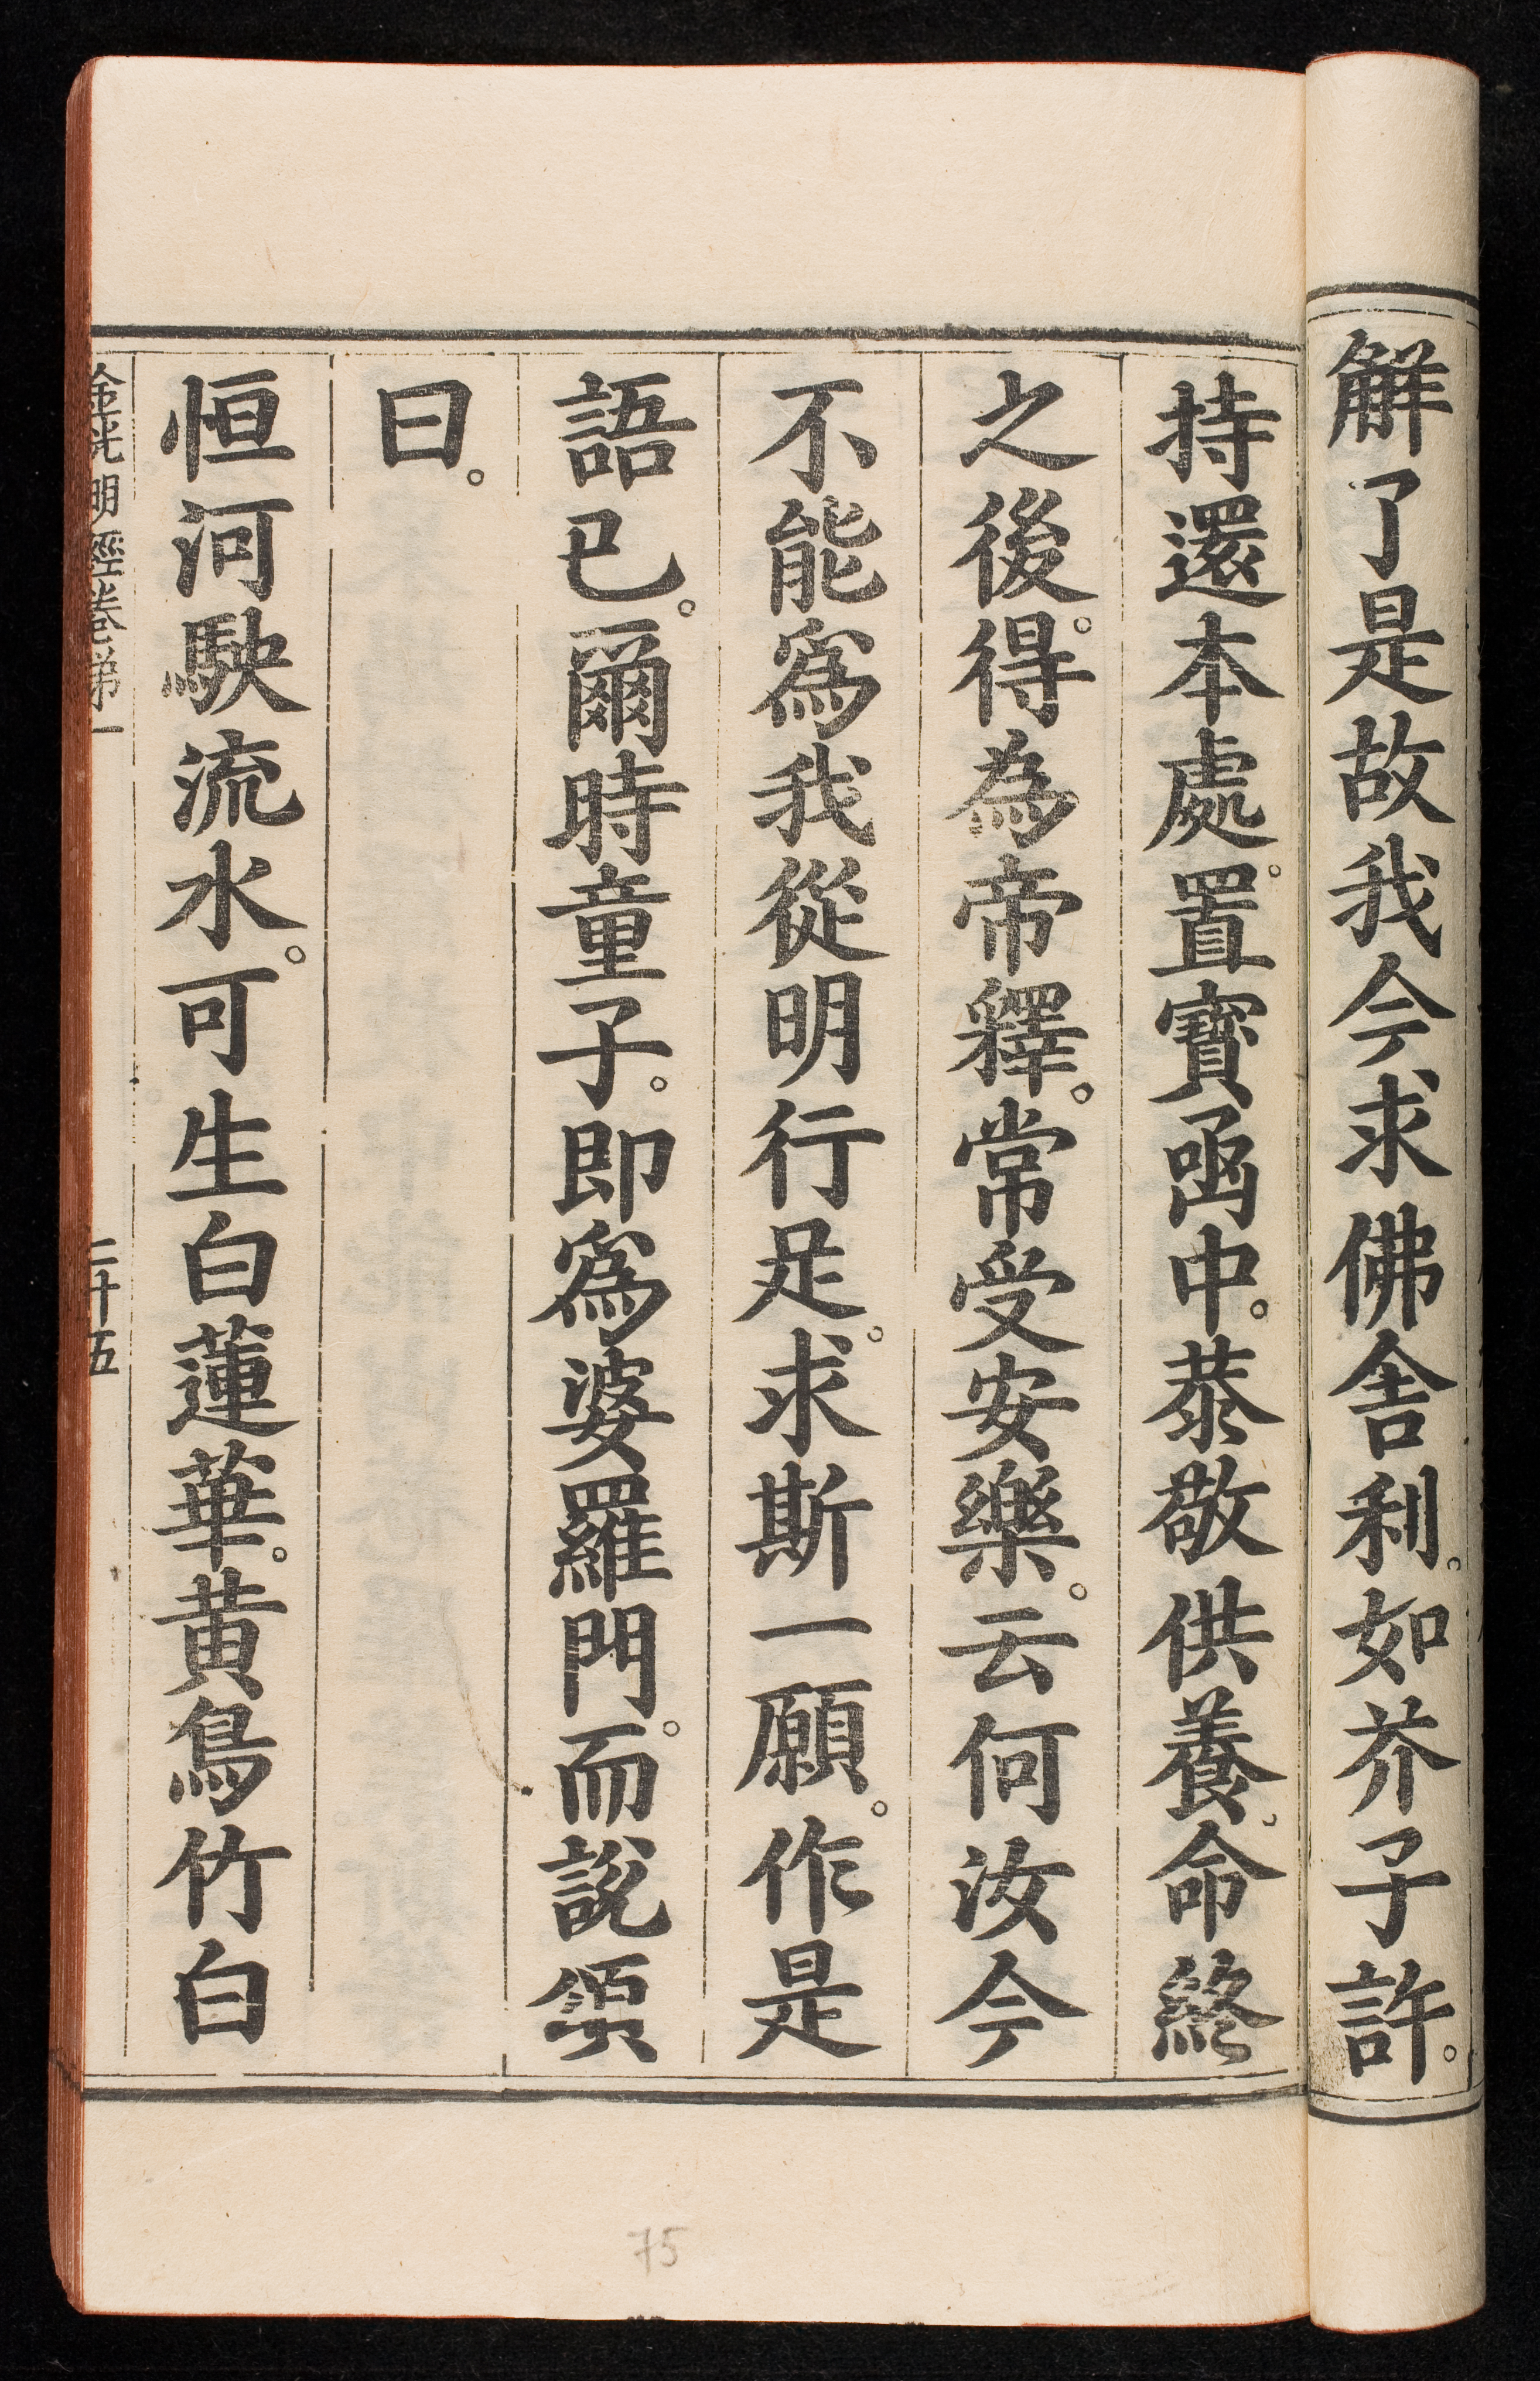 解了是故我今求佛舍利。如芥子許。
持還本處。置寶函中。恭敬供養。命終
之後。得為帝釋。常受安樂。云何汝今
不能爲我從明行足。求斯一願。作是
語已。爾時童子。即爲婆羅門。而說頌
曰。
恒河駛流水。可生白蓮華。黃鳥竹白
金光明經卷第一 二十五
75